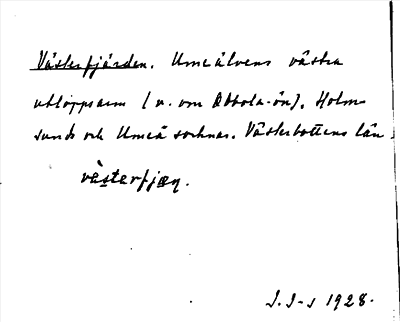 Västerfjärden. Umeälvens västra
utloppsarm (v. om Obbola-ön), Holm-
sunds och Umeå socknar. Västerbottens län.
västerfjæɳ.
J. J-s 1928.